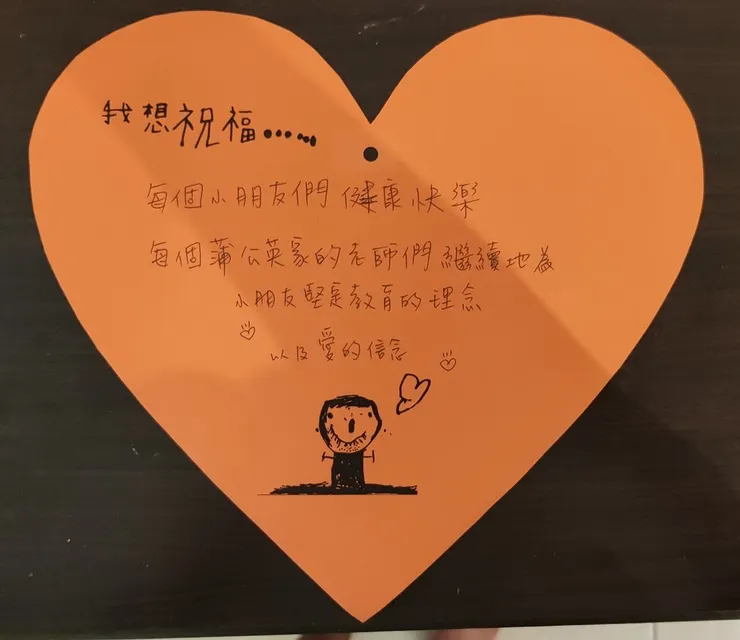 我想祝福......
每個小朋友們健康快樂
每個蒲公英家的老師們繼續地為
小朋友堅定教育的理念
以及愛的信念